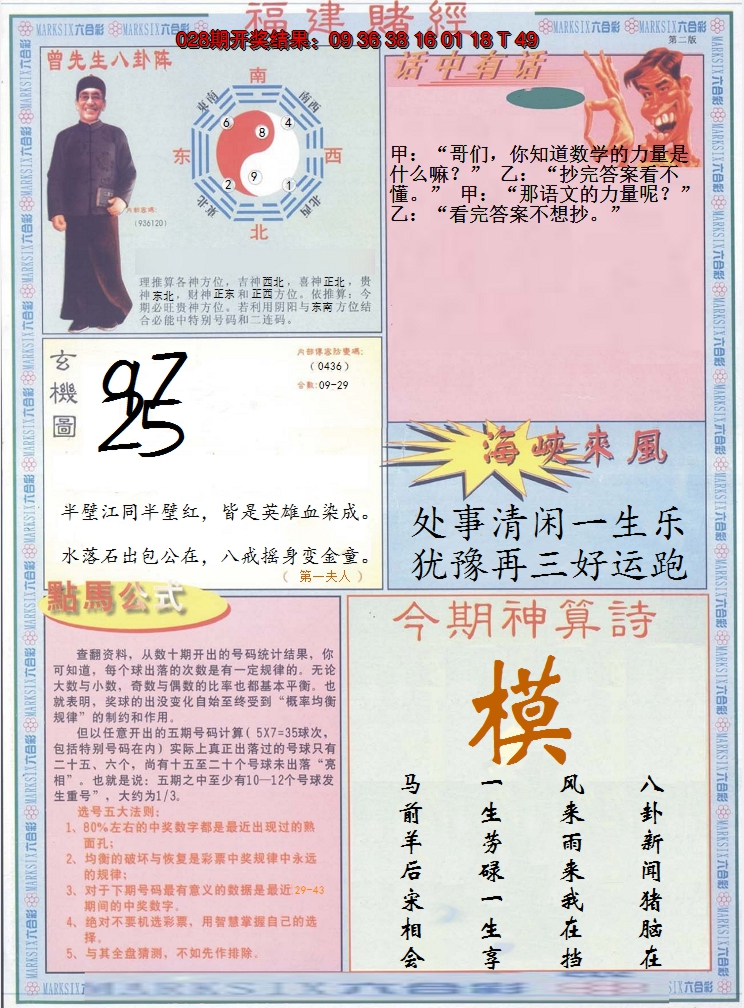 福建賭經
028期开奖结果：09 36 38 16 01 18 T 49
MARKSIX六合彩
第二版
曾先生八卦阵
南
東南
南西
6
8
4
东
西
2
9
1
東北
北西
北
内部密碼:
(936120)
理推算各神方位，吉神西北，喜神正北，贵
神东北，财神正东和正西方位。依推算：今
期必旺贵神方位。若利用阴阳与东南方位结
合必能中特别号码和二连码。
话中有话
甲：“哥们，你知道数学的力量是
什么嘛？” 乙：“抄完答案看不
懂。” 甲：“那语文的力量呢？”
乙：“看完答案不想抄。”
玄機圖
97
25
(0436)
合数:09-29
半壁江同半壁红，皆是英雄血染成。
水落石出包公在，八戒摇身变金童。
（ 第一夫人 ）
海峽來風
处事清闲一生乐
犹豫再三好运跑
點馬公式
查翻资料，从数十期开出的号码统计结果，你
可知道，每个球出落的次数是有一定规律的。无论
大数与小数，奇数与偶数的比率也都基本平衡。也
就表明，奖球的出没变化自始至终受到“概率均衡
规律”的制约和作用。
但以任意开出的五期号码计算( 5X7=35球次，
包括特别号码在内) 实际上真正出落过的号球只有
二十五、六个，尚有十五至二十个号球未出落“亮
相”。也就是说：五期之中至少有10—12个号球发
生重号”，大约为1/3。
选号五大法则:
1、80%左右的中奖数字都是最近出现过的熟
面孔;
2、均衡的破坏与恢复是彩票中奖规律中永远
的规律;
3、对于下期号码最有意义的数据是最近29-43
期间的中奖数字。
4、绝对不要机选彩票，用智慧掌握自己的选
择。
5、与其全盘猜测，不如先作排除。
今期神算詩
模
八卦新闻猪脑在
风来雨来我在挡
一生劳碌一生享
马前羊后宋相会